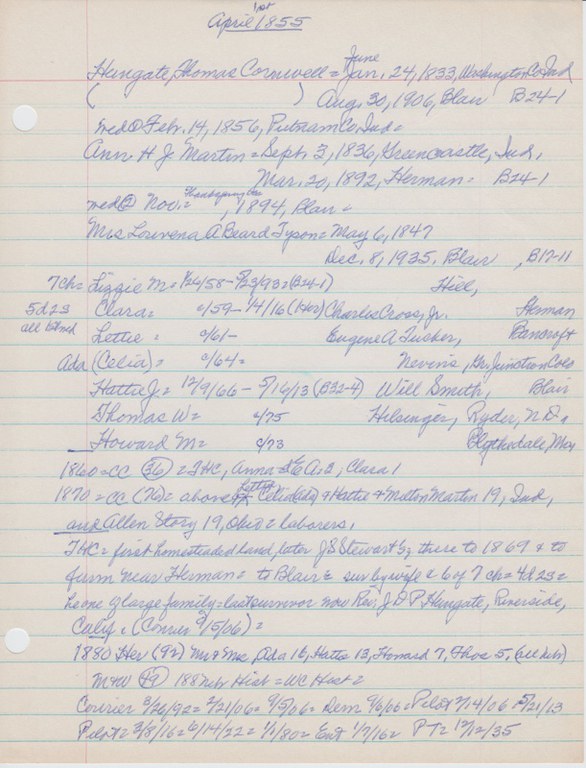 April 1st 1855
Hungate, Thomas Cornwell = June Jan. 24, 1833, Washington Co Ind
( ) Aug. 30, 1906, Blair B24-1
med ① Feb. 14, 1856, Putnam Co, Ind =
Ann H J Martin = Sept. 3, 1836, Greencastle, Ind,
Mar. 20, 1892, Herman = B24-1
med ② Nov. = Thanksgiving, 1894, Blair =
Mrs Louvena A Beard Tyson = May 6, 1847
Dec. 8, 1935, Blair, B17-11
7ch = Lizzie M = 1/24/58 - 5/23/93 = (B24-1) Hill,
5d2s Clara = c/59 - 1/4/16 Charles Cross, Jr. Herman
all listed Lettie = c/61 - Eugene A. Tucker, Bancroft
Ada (Celia) = c/64 = Nevins, Gr. Junction Colo
Hattie J = 12/9/66 - 5/16/13 (B32-4) Will Smith, Blair
Thomas W = c/75 Helsinger, Ryder, N.D.
Howard M = c/73 Blythedale, Mo
1860 = CC (36) = THC, Anna, E A. B, Clara 1
1870 = CC = above, Lettie & Hattie & Milton Martin 19, Ind,
and Allen Story 19, Ohio = laborers.
THC = first homesteaded land, later J S Stewarts, there to 1869 & to
farm near Herman = to Blair = sur by wife & 6 of 7 ch = 4d 2s =
he one of large family = last survivor now Rev. J D P Hungate, Riverside,
Calif. (Courier 9/5/06) =
1880 Her (92) Mr & Mrs, Ada 16, Hattie 13, Howard 7, Thos 5, (all Nebr)
M & W 188 Nebr Hist = WC Hist =
Courier 3/26/92 = 2/21/06 = 9/5/06 = Dem 9/6/06 = Pilot 2/14/06 = 5/21/13
Pilot = 3/8/16 = 6/14/22 = 1/1/80 = Ent 1/7/16 = PT = 12/12/35